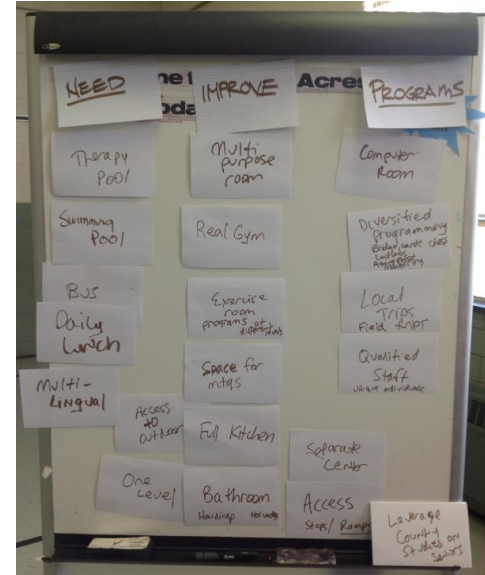 NEED
IMPROVE
Acres
PROGRAMS
Therapy
Pool
Swimming
Pool
Bus
Daily
Lunch
Multi-
Lingual
Access
to
Outdoor
One
Level
Multi
purpose
room
Real Gym
Exercise
room
programs at
different levels
Space for
mtgs
Full Kitchen
Bathroom
Handicap
Computer
Room
Diversified
Programming
Bridge, cards, chess
Lectures
Local
Trips
Field Trips
Qualified
Staff
unique individuals
Separate
Center
Access
Steps/ Ramps
Leverage
County
Studies on
Seniors